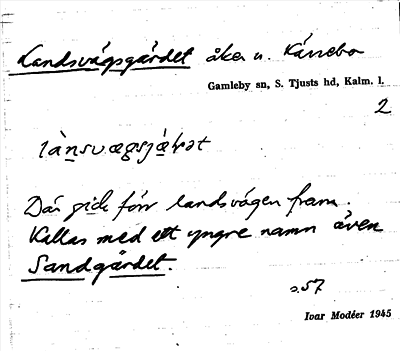 Landsvägsgärdet åker u. Kärrebo
Gamleby sn, S. Tjusts hd, Kalm. l.
2
Där gick förr landsvägen fram.
Kallas med ett yngre namn även
Sandgärdet.
s. 57
Ivar Modéer 1945